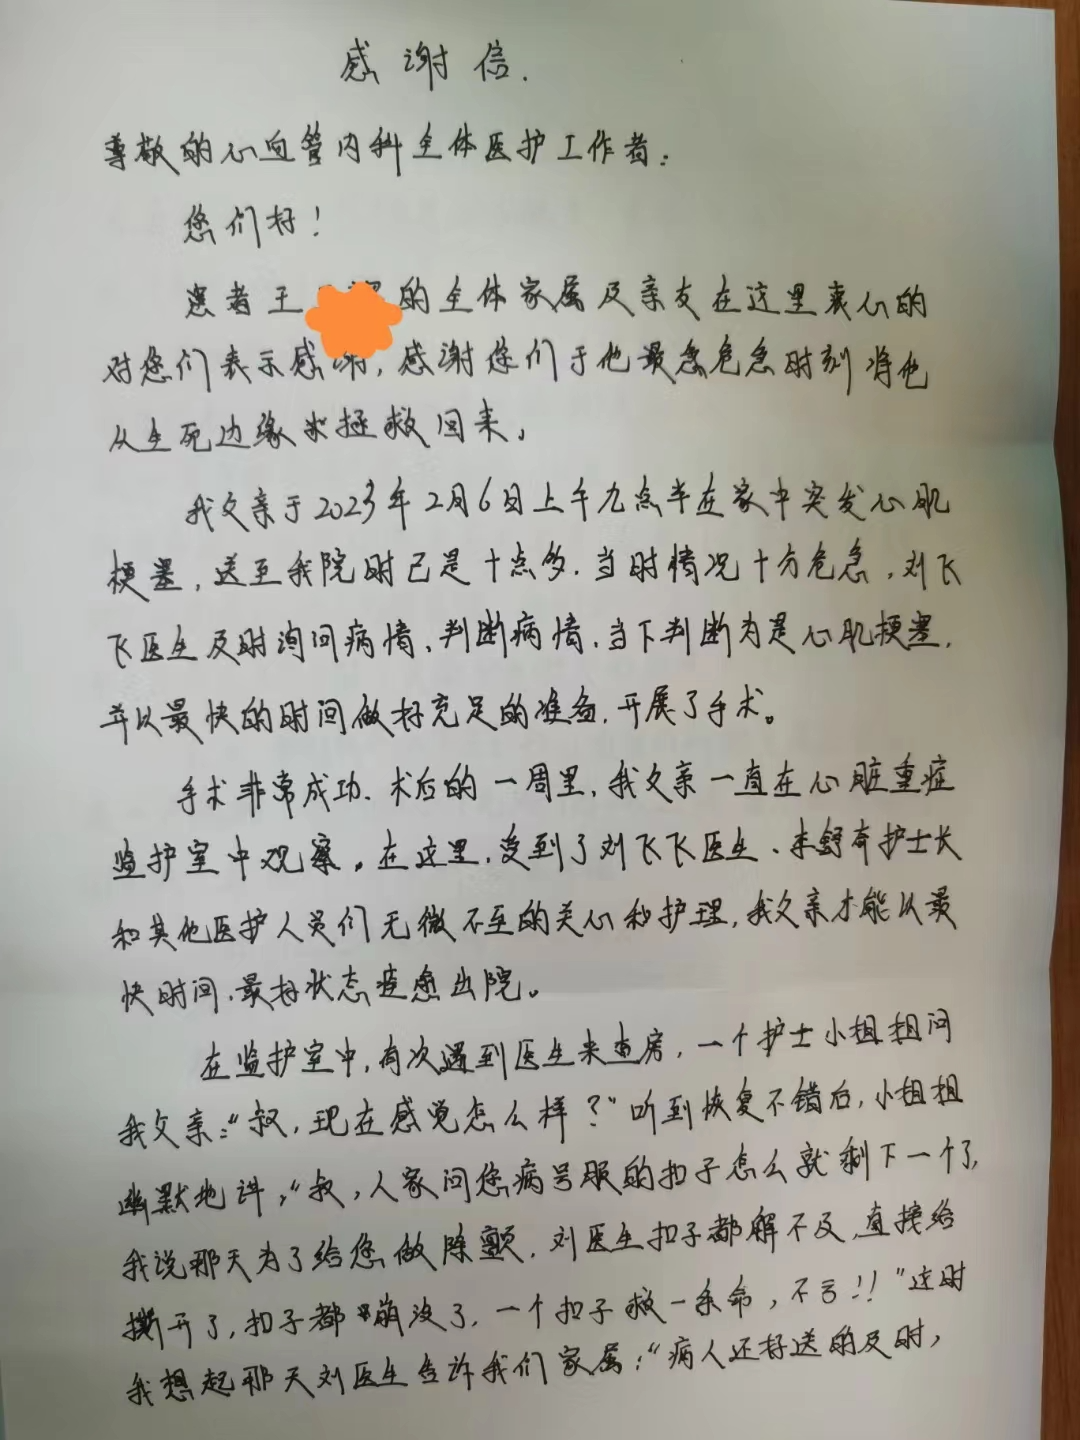 感谢信.
尊敬的心血管内科全体医护工作者：
您们好！
患者王 的全体家属及亲友在这里衷心的
对您们表示感谢，感谢您们于他最危急时刻将他
从生死边缘拯救回来。
我父亲于2023年2月6日上午九点半在家中突发心肌
梗塞，送至我院时已是十点多.当时情况十分危急，刘飞
飞医生及时询问病情、判断病情，当下判断为是心肌梗塞，
并以最快的时间做好充足的准备，开展了手术。
手术非常成功、术后的一周里，我父亲一直在心脏重症
监护室中观察。在这里，受到了刘飞飞医生、 舒奇护士长
和其他医护人员们无微不至的关心和护理，我父亲才能以最
快时间、最好状态痊愈出院。
在监护室中，有次遇到医生来查房，一个护士小姐姐问
我父亲：“叔，现在感觉怎么样？”听到恢复不错后，小姐姐
幽默地讲，“叔，人家问您病号服的扣子怎么就剩下一个了，
我说那天为了给您做除颤，刘医生扣子都解不及，直接给
撕开了，扣子都崩没了，一个扣子救一条命，不亏!!”这时
我想起那天刘医生告诉我们家属：“病人还好送的及时，